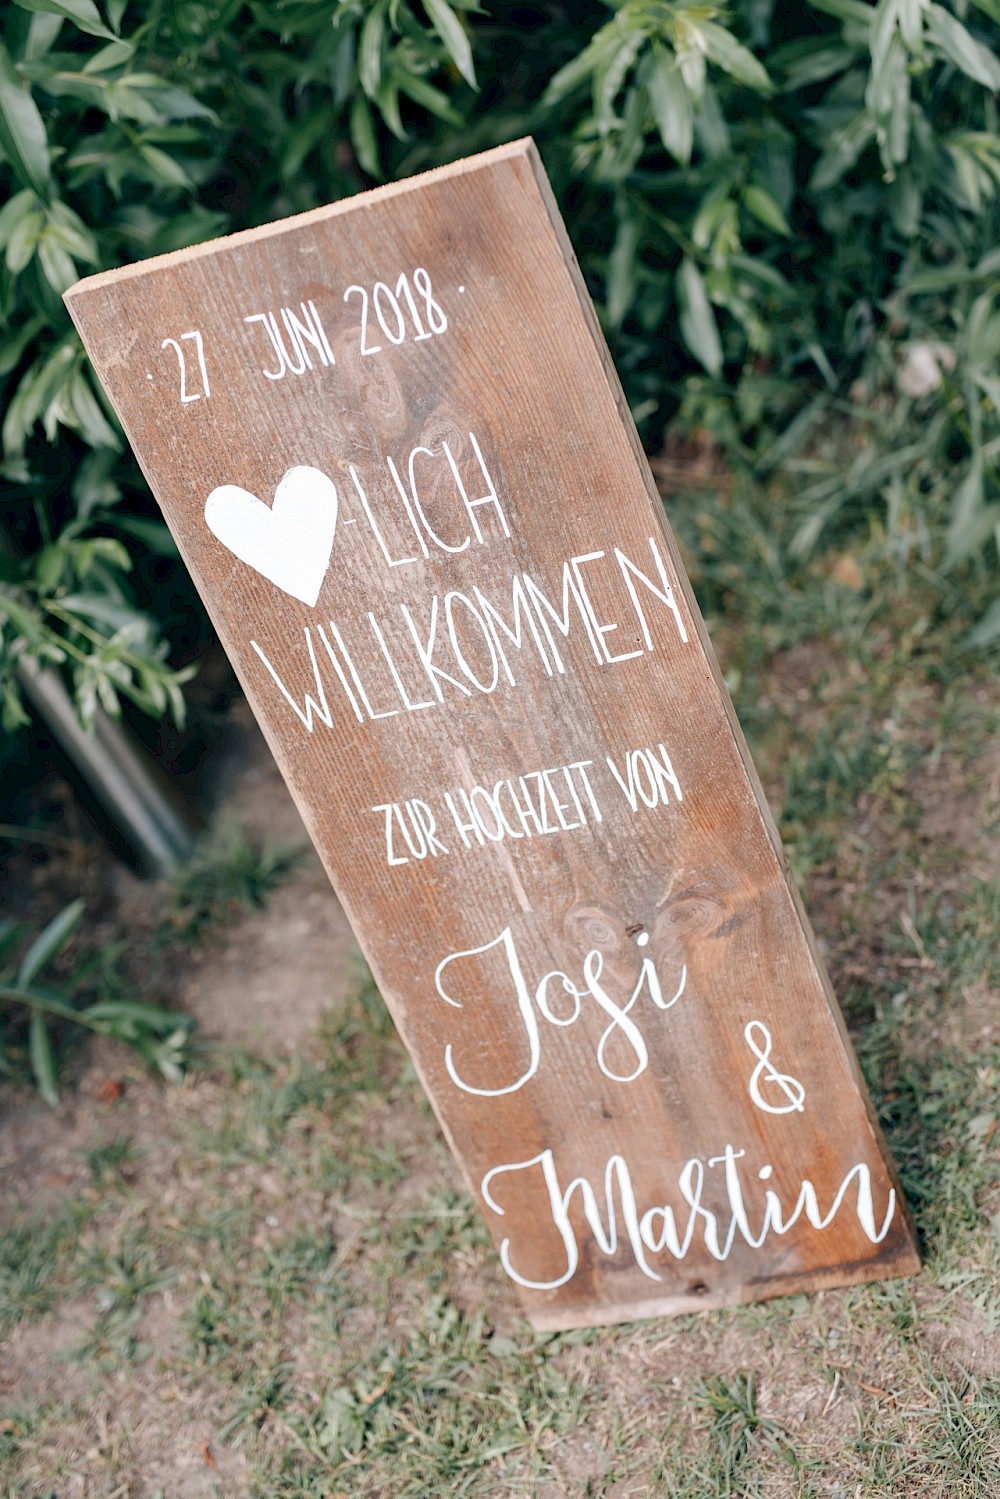 · 27 JUNI 2018 ·
♥-LICH
WILLKOMMEN
ZUR HOCHZEIT VON
Josi
&
Martin